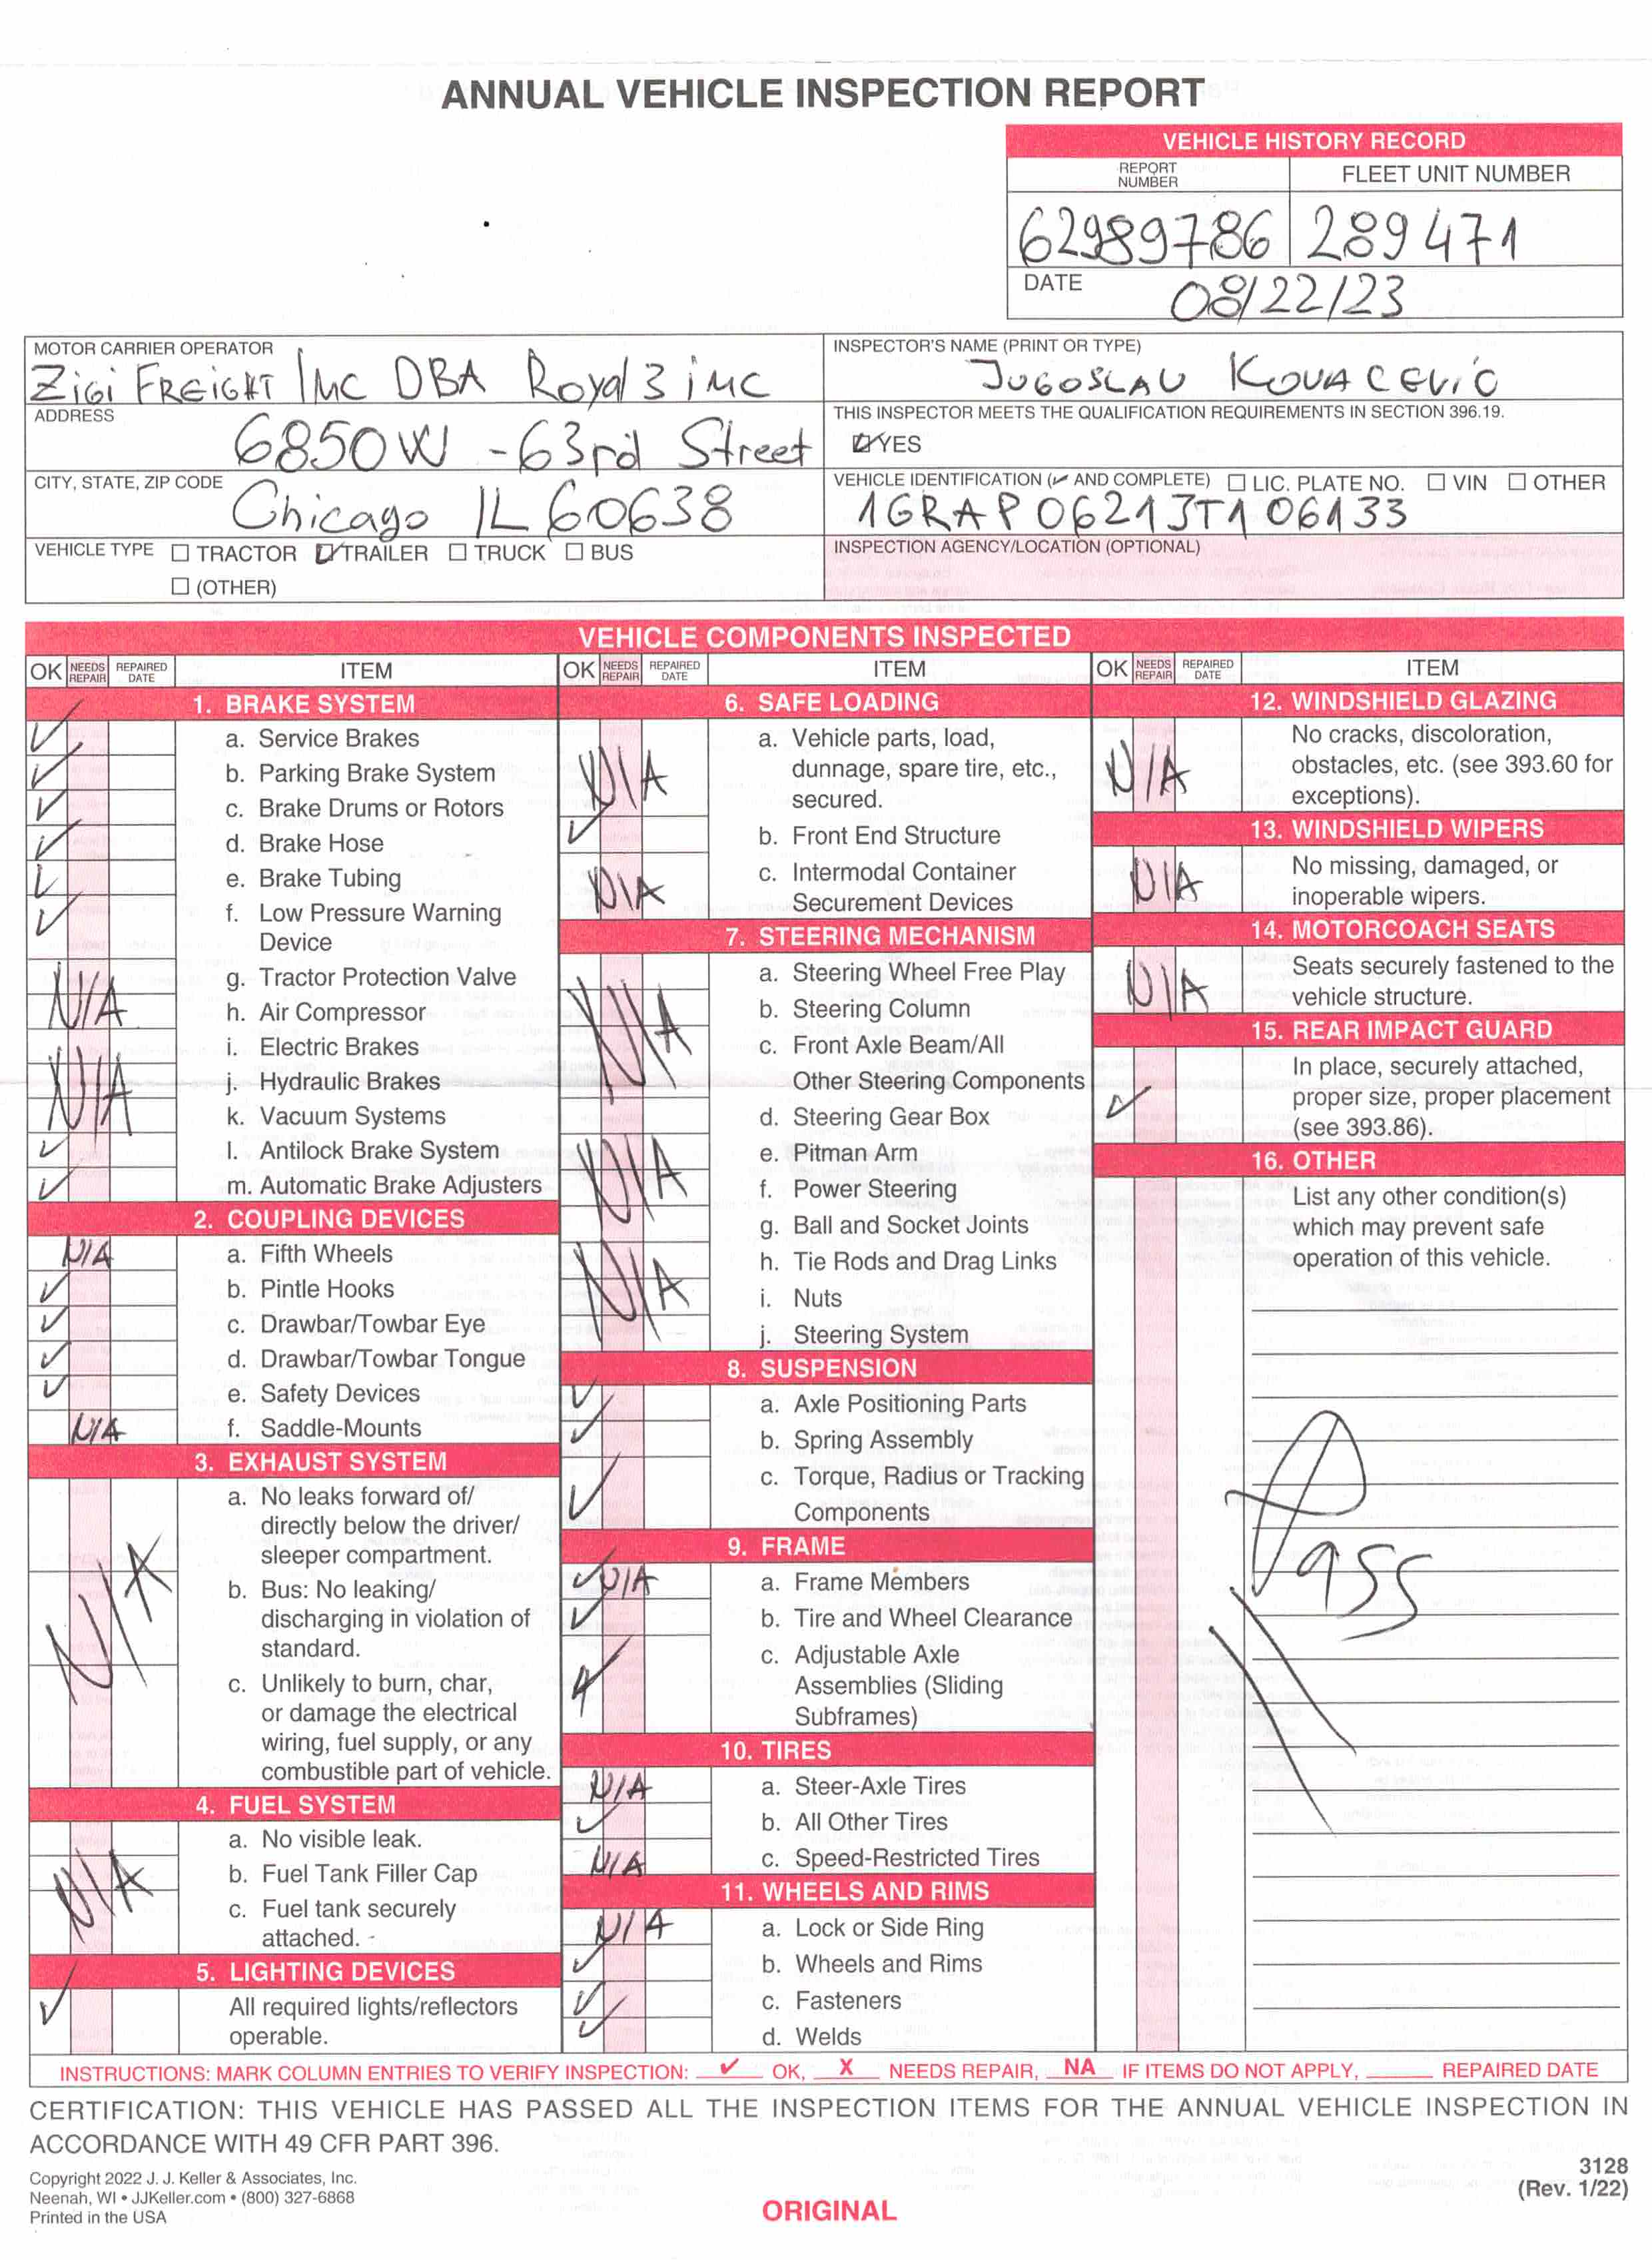 ANNUAL VEHICLE INSPECTION REPORT
VEHICLE HISTORY RECORD
REPORT NUMBER
FLEET UNIT NUMBER
62989786
289471
DATE
08/22/23
MOTOR CARRIER OPERATOR
ZiGi FREIGHT INC DBA Royal 3 iNC
INSPECTOR'S NAME (PRINT OR TYPE)
JUGOSLAV KOVACEVIC
ADDRESS
6850W - 63rd Street
THIS INSPECTOR MEETS THE QUALIFICATION REQUIREMENTS IN SECTION 396.19.
YES
CITY, STATE, ZIP CODE
Chicago IL 60638
VEHICLE IDENTIFICATION (✓ AND COMPLETE) ☐ LIC. PLATE NO. ☐ VIN ☐ OTHER
1GRAP0621JT106133
VEHICLE TYPE ☐ TRACTOR ☑ TRAILER ☐ TRUCK ☐ BUS
☐ (OTHER)
INSPECTION AGENCY/LOCATION (OPTIONAL)
VEHICLE COMPONENTS INSPECTED
OK NEEDS REPAIR REPAIRED DATE ITEM
1. BRAKE SYSTEM
✓ a. Service Brakes
✓ b. Parking Brake System
✓ c. Brake Drums or Rotors
✓ d. Brake Hose
✓ e. Brake Tubing
✓ f. Low Pressure Warning
Device
g. Tractor Protection Valve
N/A h. Air Compressor
i. Electric Brakes
N/A j. Hydraulic Brakes
k. Vacuum Systems
✓ l. Antilock Brake System
✓ m. Automatic Brake Adjusters
2. COUPLING DEVICES
N/A a. Fifth Wheels
✓ b. Pintle Hooks
✓ c. Drawbar/Towbar Eye
✓ d. Drawbar/Towbar Tongue
✓ e. Safety Devices
N/A f. Saddle-Mounts
3. EXHAUST SYSTEM
a. No leaks forward of/
directly below the driver/
sleeper compartment.
N/A b. Bus: No leaking/
discharging in violation of
standard.
c. Unlikely to burn, char,
or damage the electrical
wiring, fuel supply, or any
combustible part of vehicle.
4. FUEL SYSTEM
a. No visible leak.
N/A b. Fuel Tank Filler Cap
c. Fuel tank securely
attached.
5. LIGHTING DEVICES
✓ All required lights/reflectors
operable.
OK NEEDS REPAIR REPAIRED DATE ITEM
6. SAFE LOADING
a. Vehicle parts, load,
N/A dunnage, spare tire, etc.,
secured.
✓ b. Front End Structure
N/A c. Intermodal Container
Securement Devices
7. STEERING MECHANISM
a. Steering Wheel Free Play
N/A b. Steering Column
c. Front Axle Beam/All
Other Steering Components
d. Steering Gear Box
e. Pitman Arm
N/A f. Power Steering
g. Ball and Socket Joints
h. Tie Rods and Drag Links
N/A i. Nuts
j. Steering System
8. SUSPENSION
✓ a. Axle Positioning Parts
✓ b. Spring Assembly
✓ c. Torque, Radius or Tracking
Components
9. FRAME
✓ N/A a. Frame Members
✓ b. Tire and Wheel Clearance
✓ c. Adjustable Axle
Assemblies (Sliding
Subframes)
10. TIRES
N/A a. Steer-Axle Tires
✓ b. All Other Tires
N/A c. Speed-Restricted Tires
11. WHEELS AND RIMS
N/A a. Lock or Side Ring
✓ b. Wheels and Rims
✓ c. Fasteners
✓ d. Welds
OK NEEDS REPAIR REPAIRED DATE ITEM
12. WINDSHIELD GLAZING
No cracks, discoloration,
N/A obstacles, etc. (see 393.60 for
exceptions).
13. WINDSHIELD WIPERS
N/A No missing, damaged, or
inoperable wipers.
14. MOTORCOACH SEATS
N/A Seats securely fastened to the
vehicle structure.
15. REAR IMPACT GUARD
In place, securely attached,
✓ proper size, proper placement
(see 393.86).
16. OTHER
List any other condition(s)
which may prevent safe
operation of this vehicle.
Pass
INSTRUCTIONS: MARK COLUMN ENTRIES TO VERIFY INSPECTION: ✓ OK, X NEEDS REPAIR, NA IF ITEMS DO NOT APPLY, ____ REPAIRED DATE
CERTIFICATION: THIS VEHICLE HAS PASSED ALL THE INSPECTION ITEMS FOR THE ANNUAL VEHICLE INSPECTION IN
ACCORDANCE WITH 49 CFR PART 396.
Copyright 2022 J. J. Keller & Associates, Inc.
Neenah, WI • JJKeller.com • (800) 327-6868
Printed in the USA
ORIGINAL
3128
(Rev. 1/22)